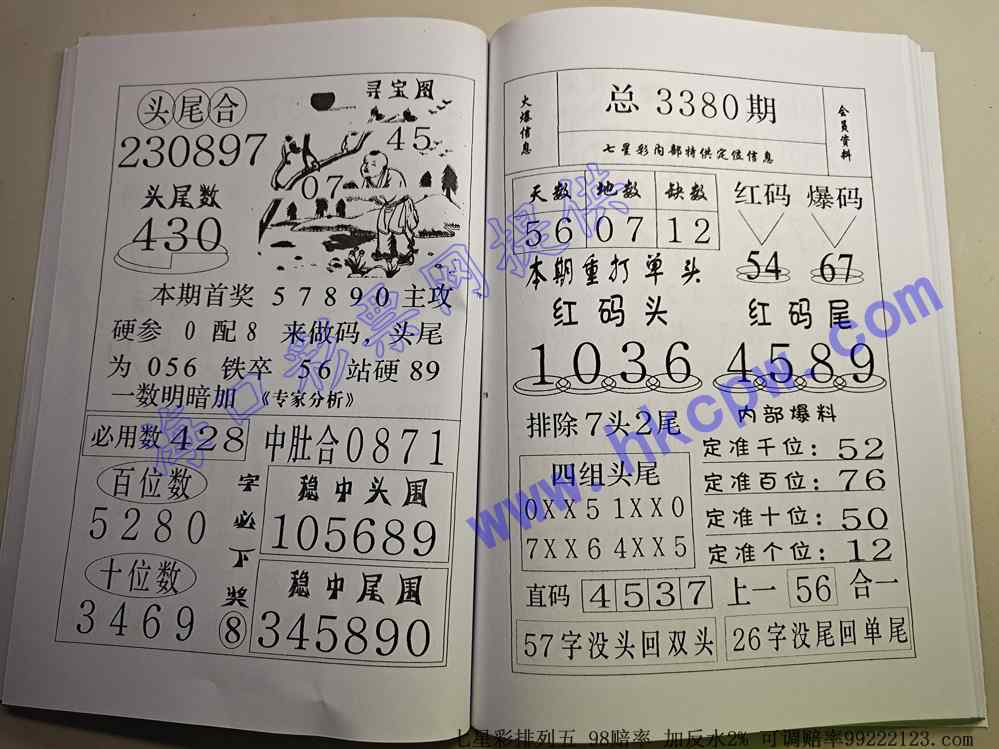 头尾合
230897
头尾数
430
寻宝图
45
07
本期首奖 57890 主攻
硬参 0 配 8 来做码,头尾
为 056 铁卒 56 站硬 89
一数明暗加 《专家分析》
必用数 428
中肚合0871
百位数
5280
十位数
3469
字必下奖
⑧
稳中头围
105689
稳中尾围
345890
火爆信息
总 3380 期
七星彩内部特供定位信息
会员资料
天数 地数 缺数
56 07 12
红码 爆码
54 67
本期重打单头
红码头
1036
红码尾
4589
排除7头2尾
四组头尾
0XX5 1XX0
7XX6 4XX5
内部爆料
定准千位:52
定准百位:76
定准十位:50
定准个位:12
直码 4537 上一 56 合一
57字没头回双头
26字没尾回单尾
海口彩票网提供
www.hkcpw.com
七星彩排列五 98赔率 加反水2% 可调赔率99222123.com